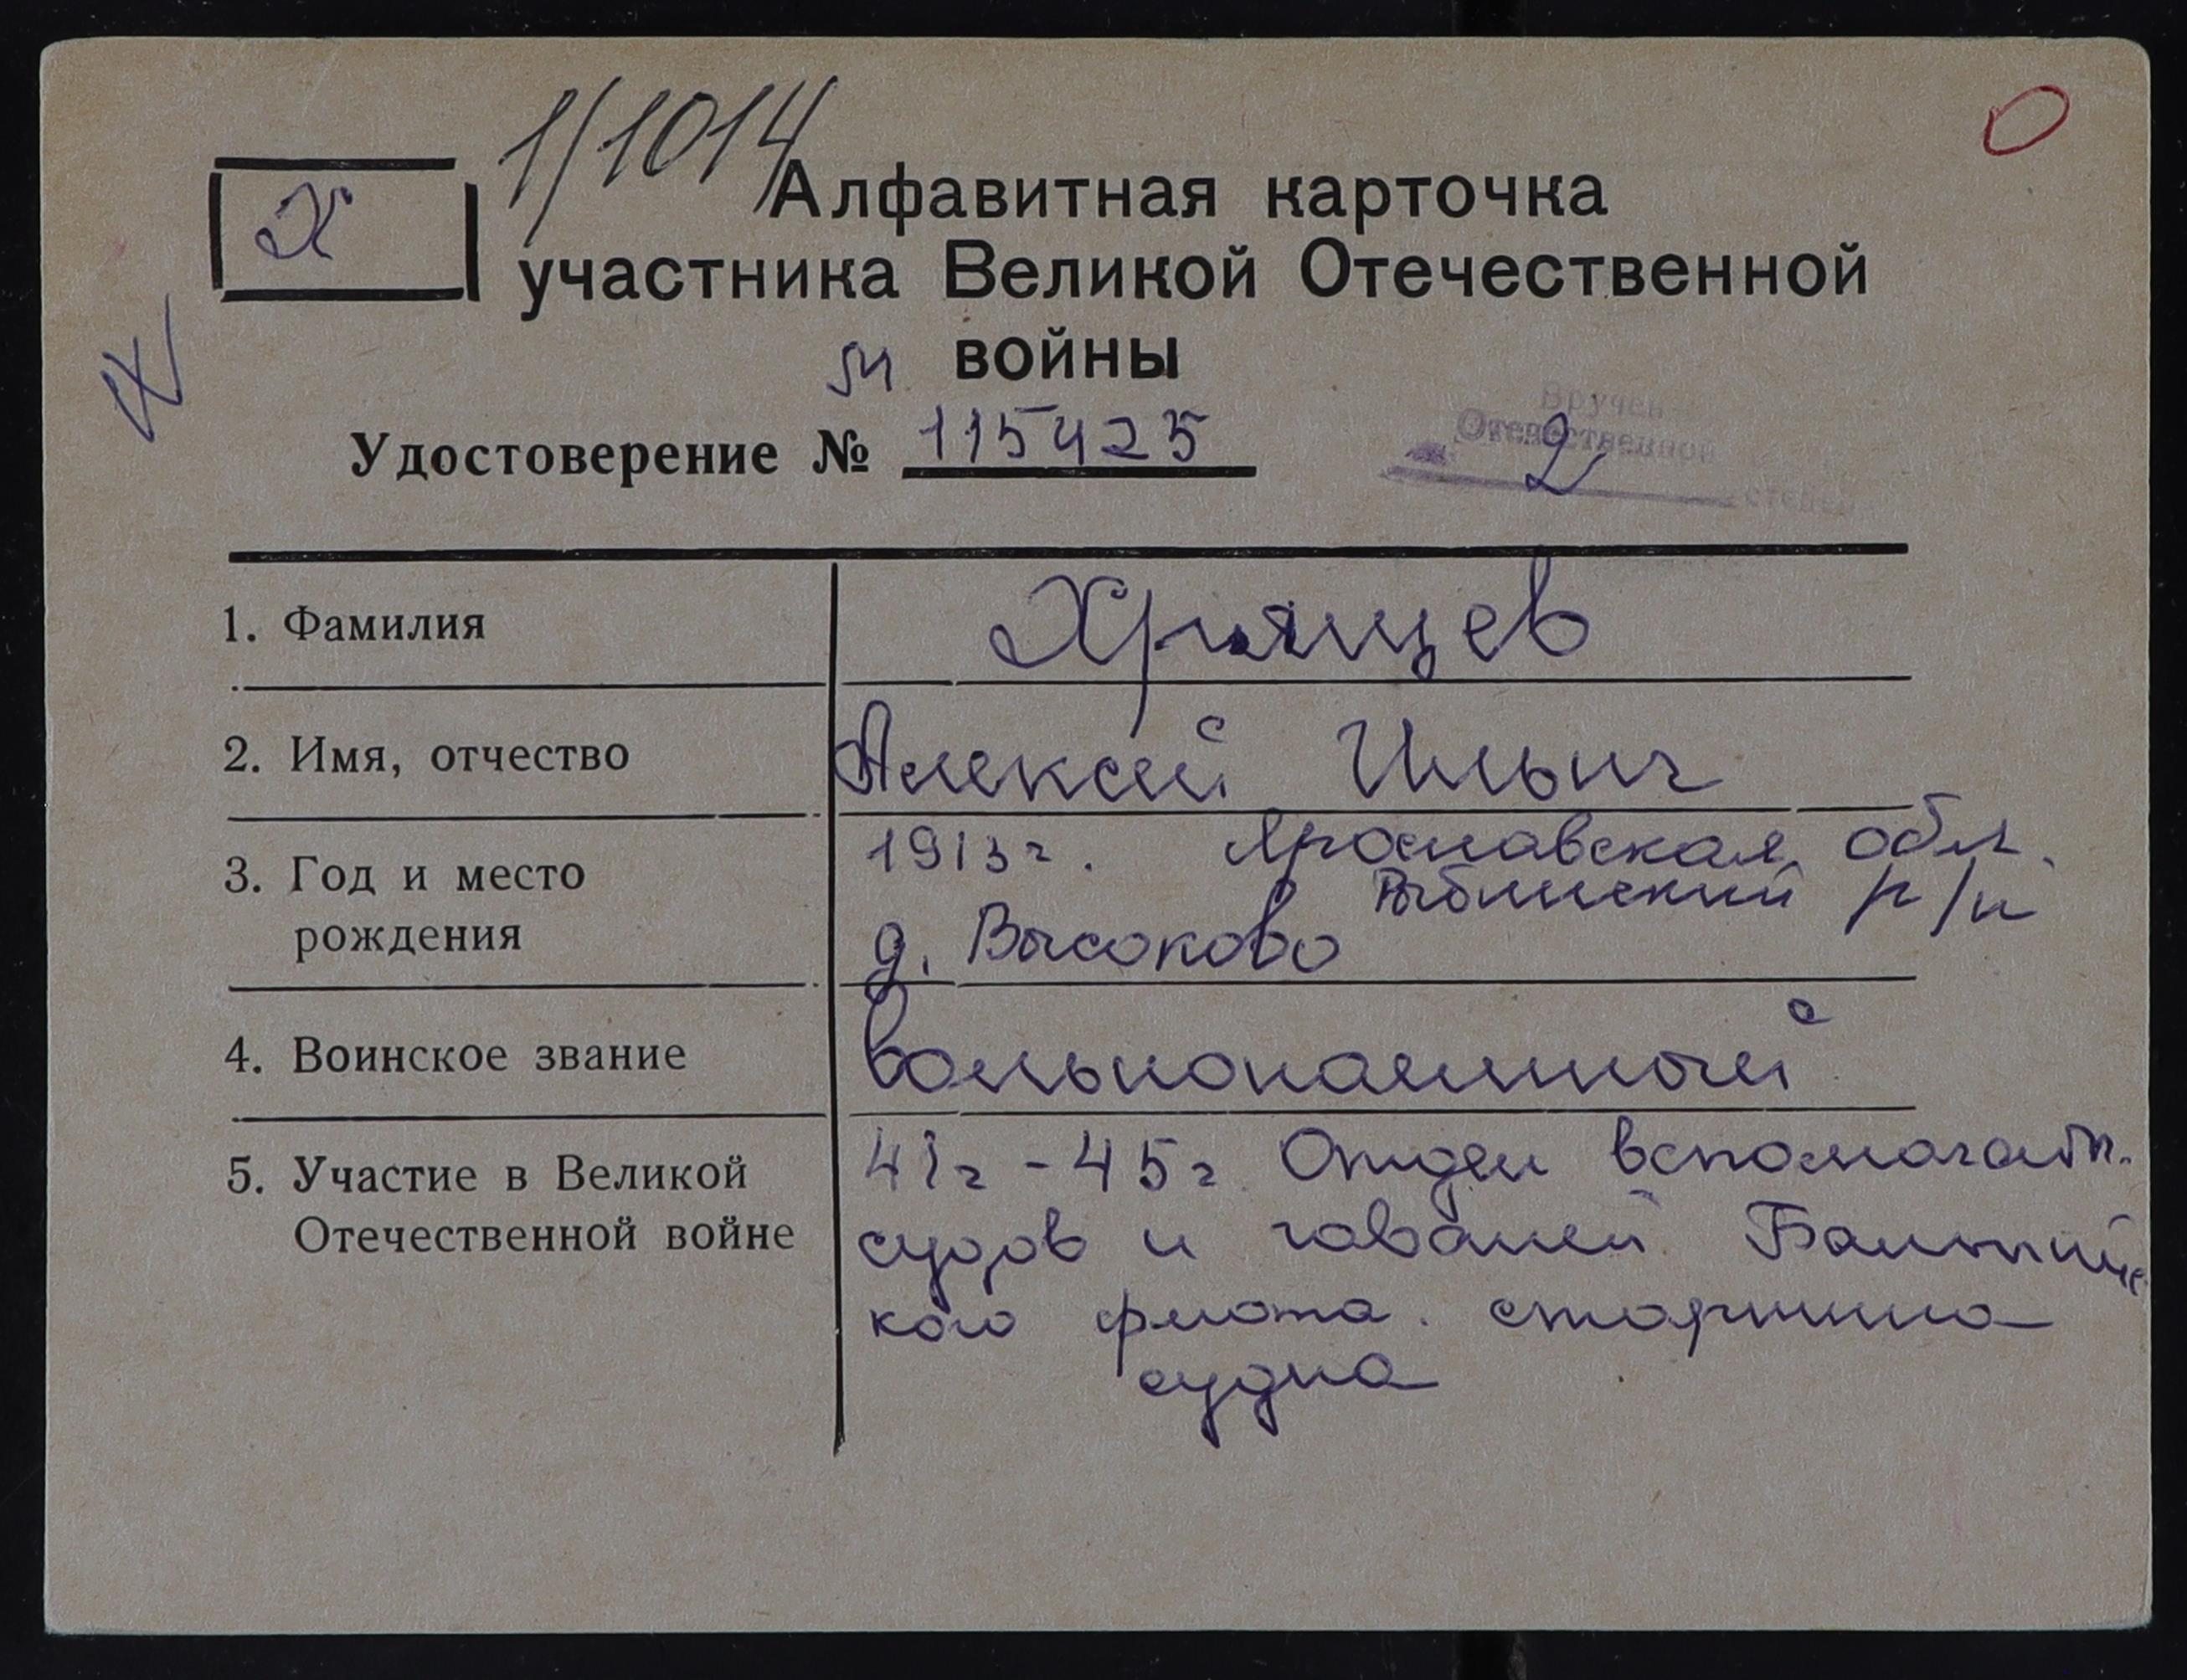 1/1014
Х
Алфавитная карточка
участника Великой Отечественной
войны
Удостоверение № 115425
Вручен
Отечественной
2
степени
1. Фамилия
Хрящев
2. Имя, отчество
Алексей Ильич
3. Год и место
рождения
1913г. Ярославская обл.
Рыбинский р/н
д. Высоково
4. Воинское звание
вольнонаемный
5. Участие в Великой
Отечественной войне
41г - 45г Отдел вспомогат.
судов и гаваней Балтийс
кого флота. старшина
судна